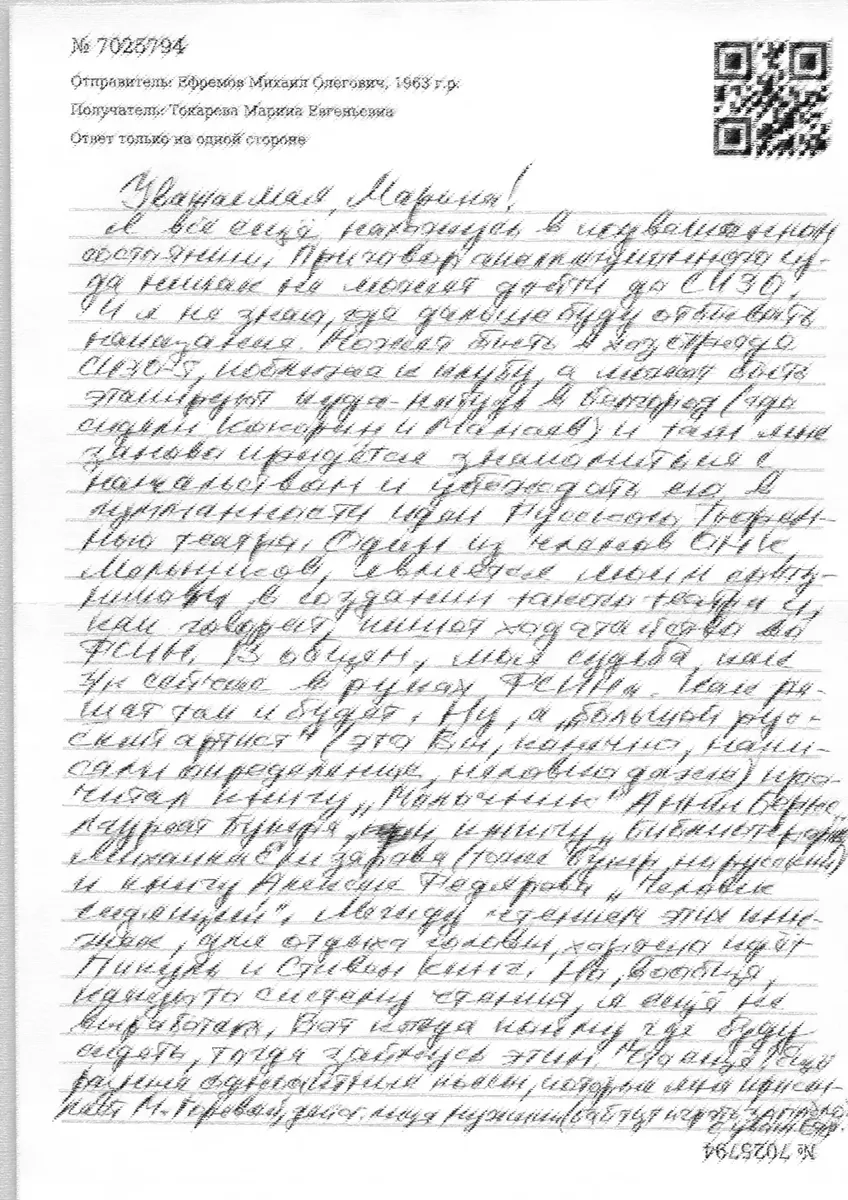 № 7025794
Отправитель: Ефремов Михаил Олегович, 1963 г.р.
Получатель: Токарева Марина Евгеньевна
Ответ только на одной стороне
Уважаемая, Марина!
Я всё ещё нахожусь в подвешенном
состоянии. Приговор апелляционного су-
да никак не может дойти до СИЗО,
и я не знаю, где дальше буду отбывать
наказание. Может быть в хозотряде
СИЗО-5, поближе к клубу, а может быть
этапируют куда-нибудь в Белгород (где
сидели Кокорин и Мамаев) и там мне
заново придётся знакомиться с
начальством и убеждать его в
нужности идеи Русского Тюрем-
ного театра. Один из членов ОНК,
Мельников, является моим
в создании такого театра и,
как говорит, пишет ходатайства во
ФСИН. В общем, моя судьба, как
уж сейчас в руках ФСИНа. Как ре-
шат так и будет. Ну, а "большой рус-
ский артист" (это Вы, конечно, напи-
сали определение, неловко даже) про-
читал книгу "Молочник" Анны Бёрнс,
лауреат Букера, книгу "Библиотекарь"
Михаила Елизарова (тоже букер, но русский)
и книгу Алексея Федярова "Человек
сидящий". Между чтением этих кни-
жек, для отдыха головы, хорошо идёт
Пикуль и Стивен Кинг. Но, вообще,
какую-то систему чтения, я ещё не
выработал. Вот когда пойму где буду
сидеть, тогда займусь этим. Ещё
разные одноактные пьесы, которые мне присы-
лает М. Горевой,
№ 7025794